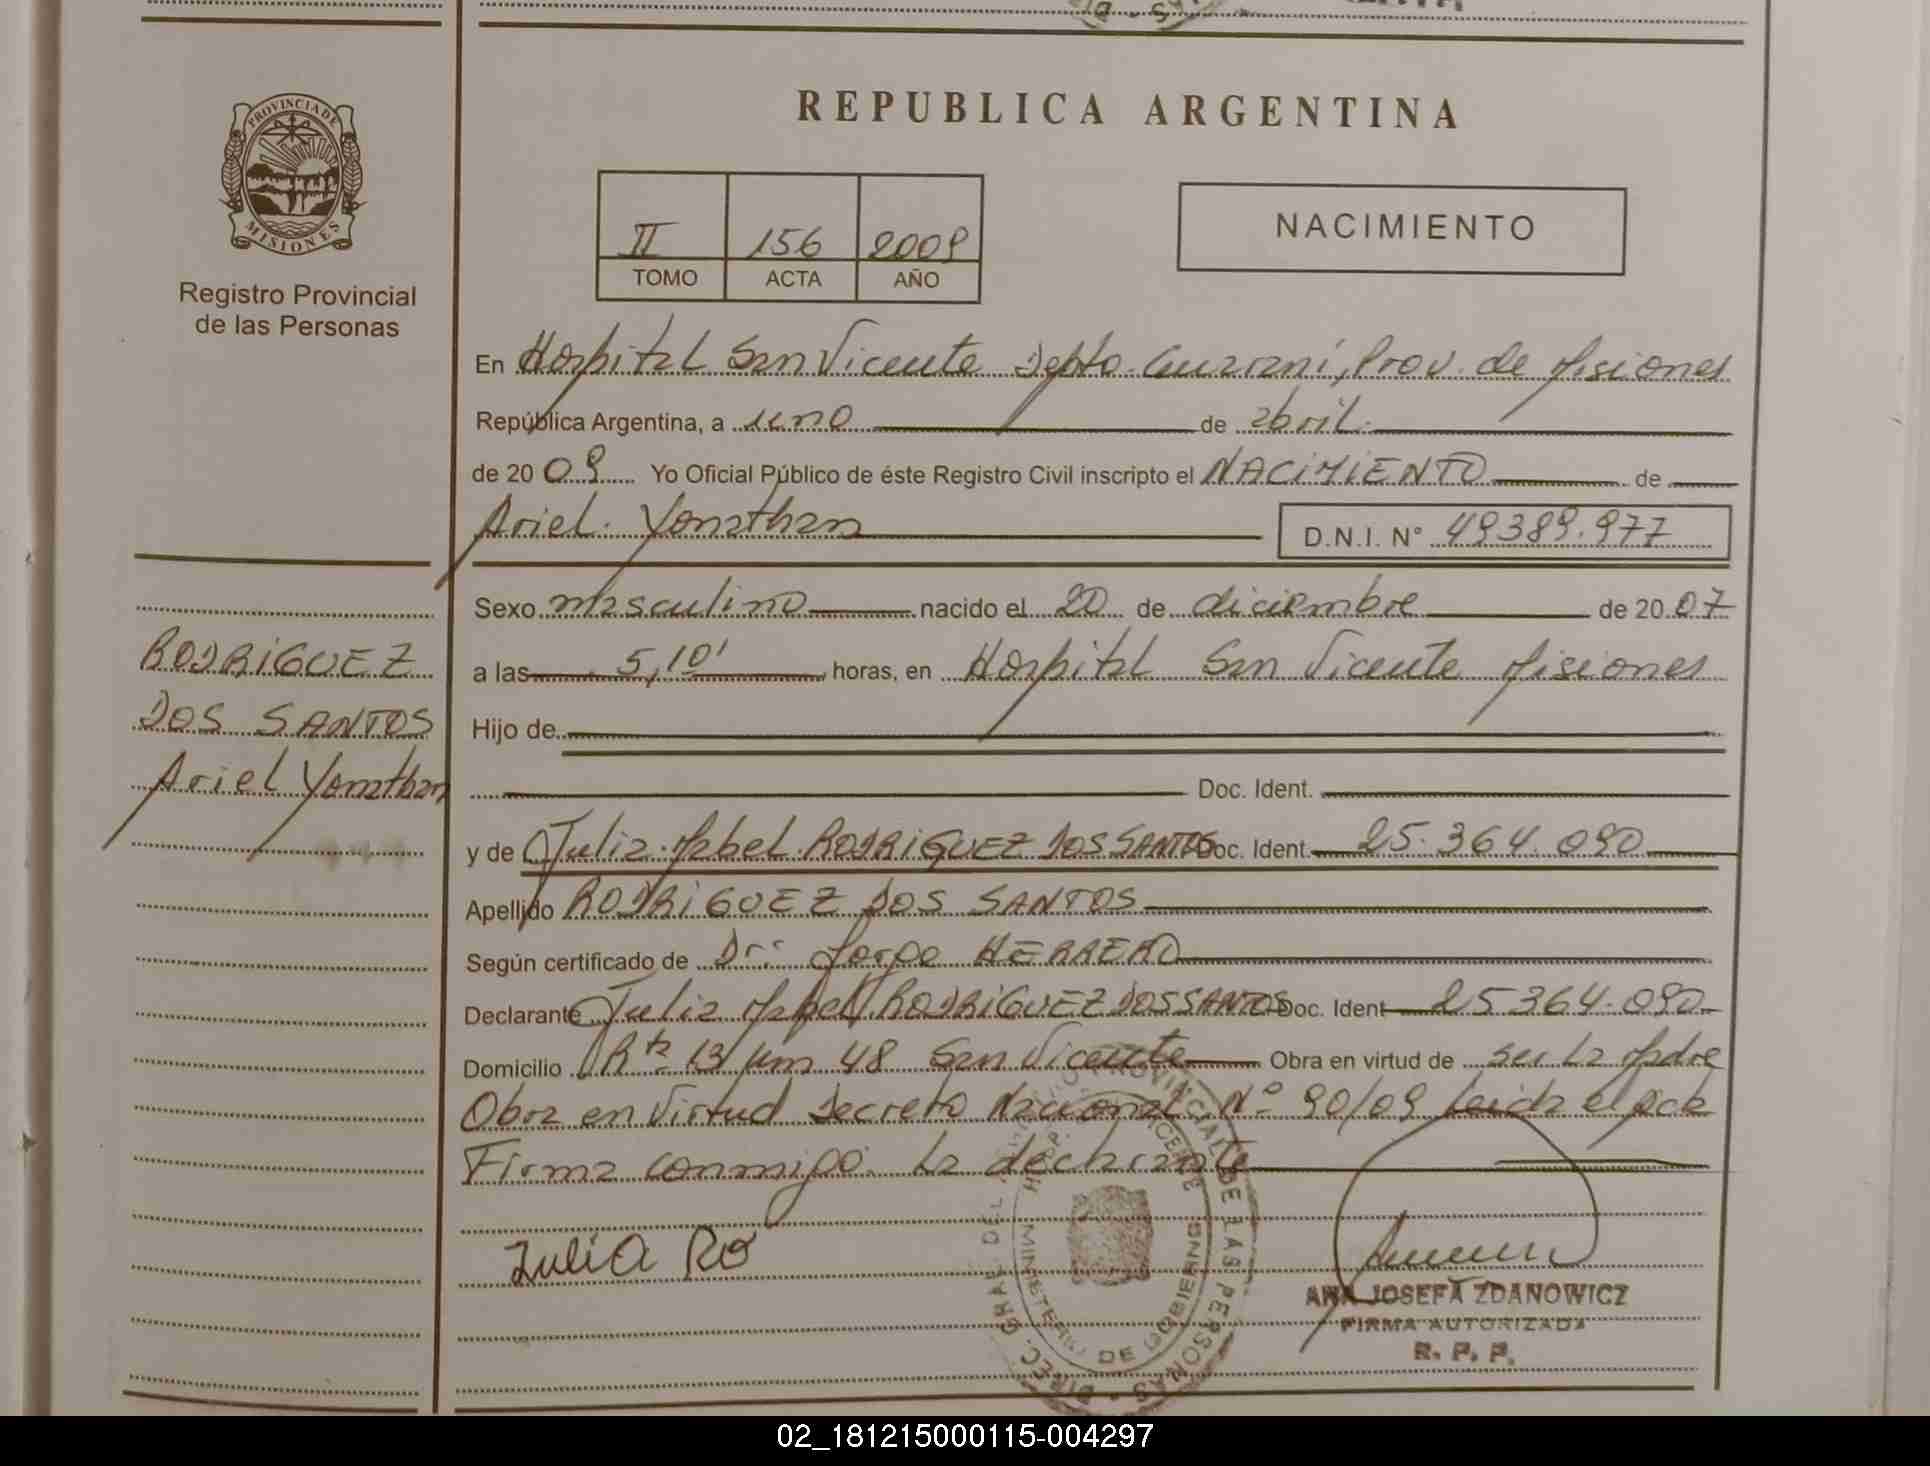 REPUBLICA ARGENTINA
PROVINCIA DE
MISIONES
Registro Provincial
de las Personas
II 156 2009
TOMO ACTA AÑO
NACIMIENTO
En Hospital San Vicente Depto. Guaraní, Prov. de Misiones
República Argentina, a uno de abril.
de 20 09 Yo Oficial Público de éste Registro Civil inscripto el NACIMIENTO de
Ariel Yonathan D.N.I. N° 49389.977
Sexo masculino nacido el 20 de diciembre de 20 07
RODRIGUEZ
DOS SANTOS
Ariel Yonathan
a las 5,10' horas, en Hospital San Vicente Misiones
Hijo de
Doc. Ident.
y de Julia Mabel RODRIGUEZ DOS SANTOS Doc. Ident. 25.364.090
Apellido RODRIGUEZ DOS SANTOS
Según certificado de Dr: Jorge HERRERO
Declarante Julia Mabel RODRIGUEZ DOS SANTOS Doc. Ident 25364.090
Domicilio Rta 13 km 48 San Vicente Obra en virtud de ser la Madre
Obra en Virtud Decreto Nacional N° 90/09 Leida el acta
Firma conmigo la declarante
Julia Ro
DIREC. GRAL. DEL REGISTRO PROVINCIAL DE LAS PERSONAS
MINISTERIO DE GOBIERNO
ANA JOSEFA ZDANOWICZ
FIRMA AUTORIZADA
R. P. P.
02_181215000115-004297